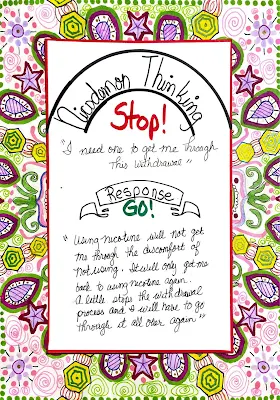 Nicodemon Thinking
Stop!
"I need one to get me through
this withdrawal"
Response
GO!
"Using nicotine will not get
me through the discomfort of
not using. It will only get me
back to using nicotine again.
A little stops the withdrawal
process and I will have to go
through it all over again"